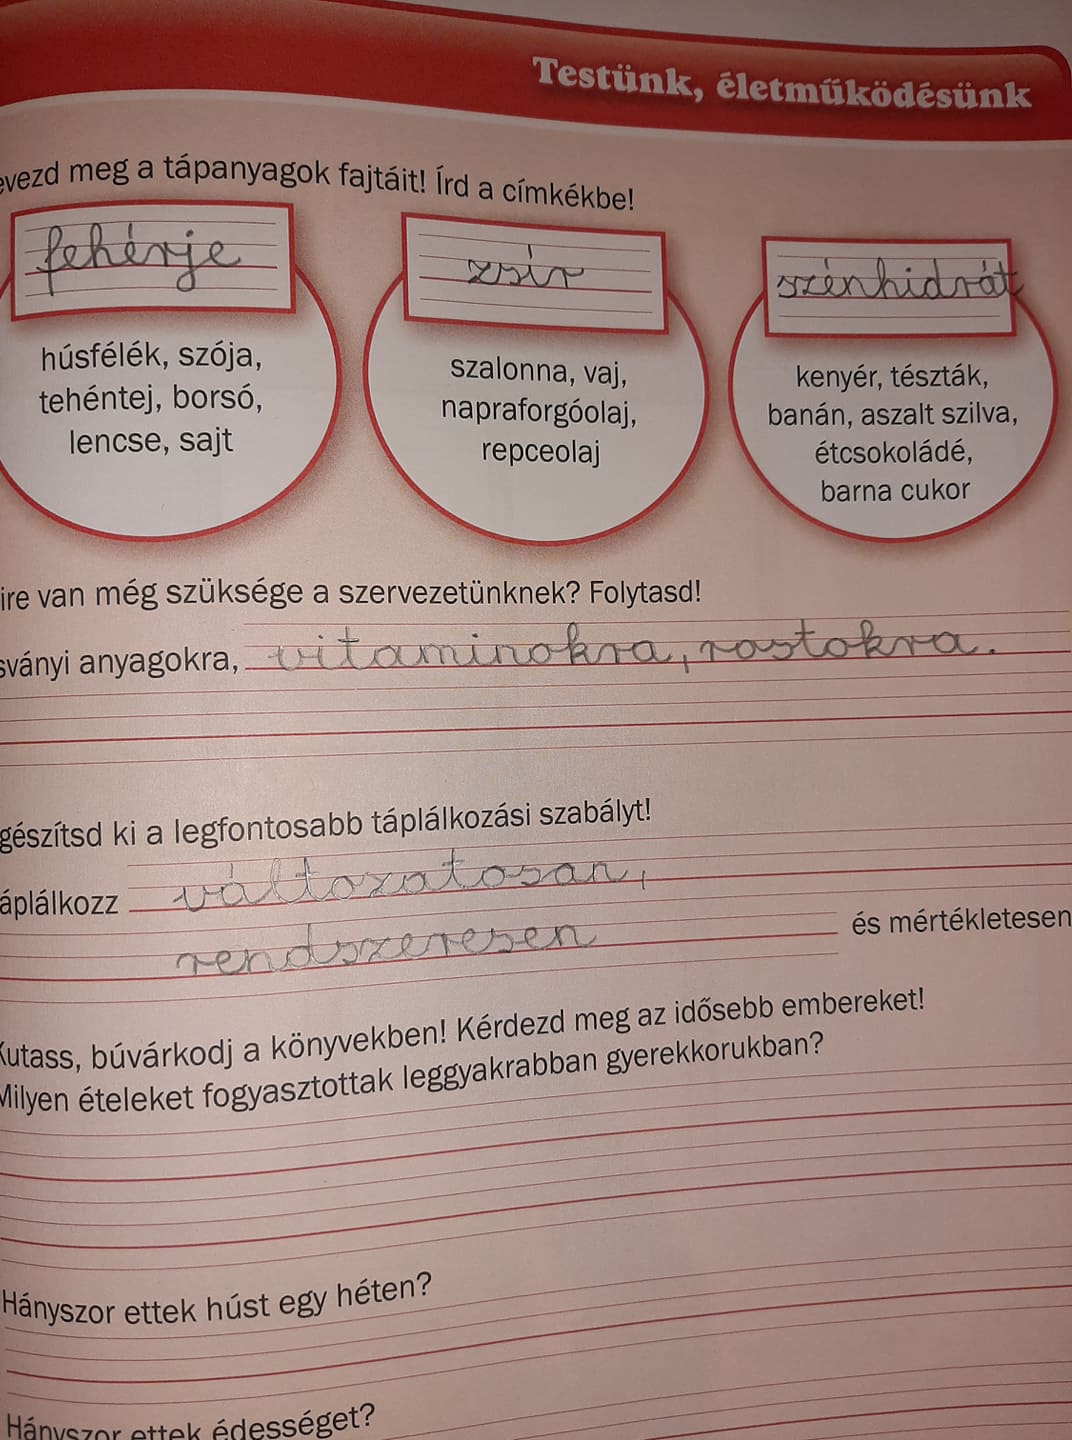 Testünk, életműködésünk
evezd meg a tápanyagok fajtáit! Írd a címkékbe!
fehérje
zsír
szénhidrát
húsfélék, szója,
tehéntej, borsó,
lencse, sajt
szalonna, vaj,
napraforgóolaj,
repceolaj
kenyér, tészták,
banán, aszalt szilva,
étcsokoládé,
barna cukor
ire van még szüksége a szervezetünknek? Folytasd!
sványi anyagokra, vitaminokra, rostokra.
gészítsd ki a legfontosabb táplálkozási szabályt!
áplálkozz változatosan,
rendszeresen és mértékletesen
Kutass, búvárkodj a könyvekben! Kérdezd meg az idősebb embereket!
Milyen ételeket fogyasztottak leggyakrabban gyerekkorukban?
Hányszor ettek húst egy héten?
Hányszor ettek édességet?